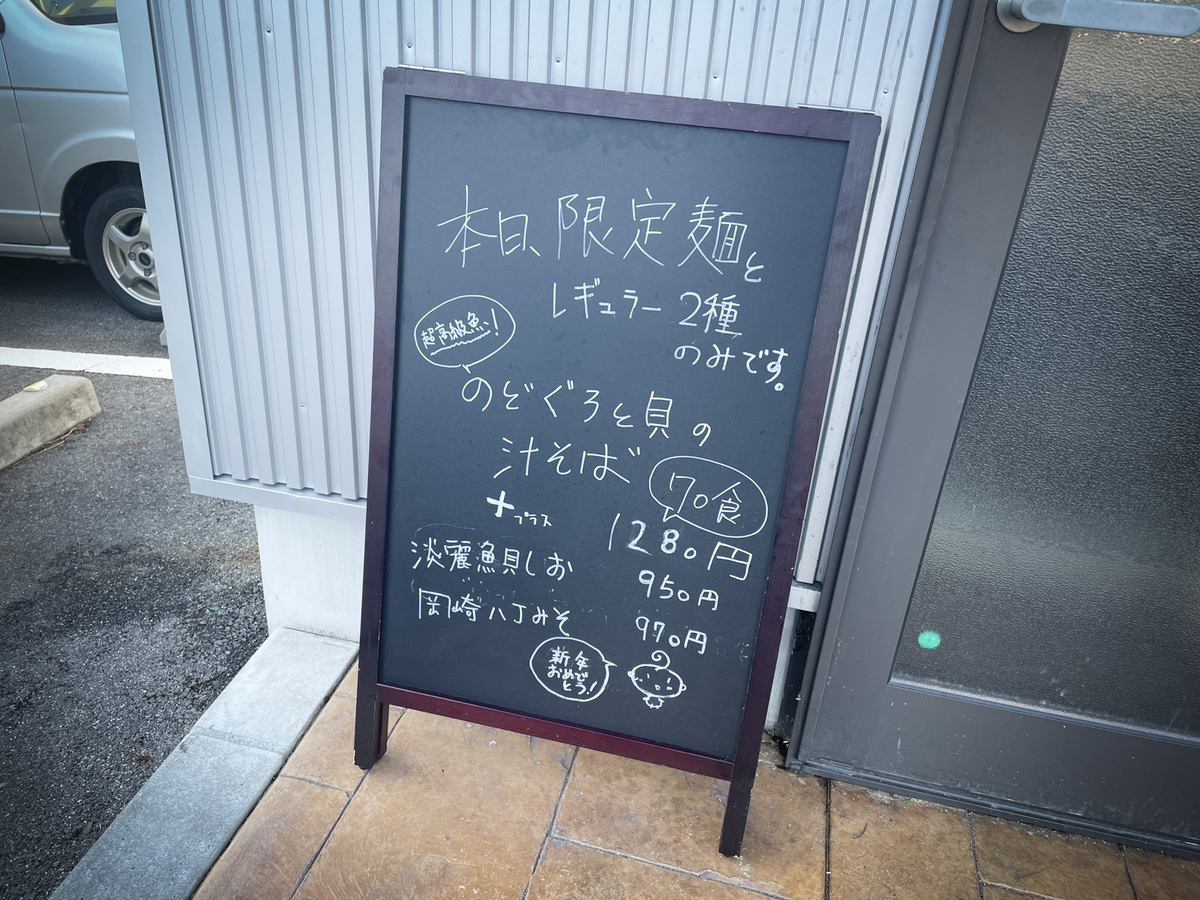 本日、限定麺と
レギュラー 2種
のみです。
超高級魚!
のどぐろと貝の
汁そば
70食
+プラス
1280円
淡麗魚貝しお 950円
岡崎八丁みそ 970円
新年
おめで
とう!